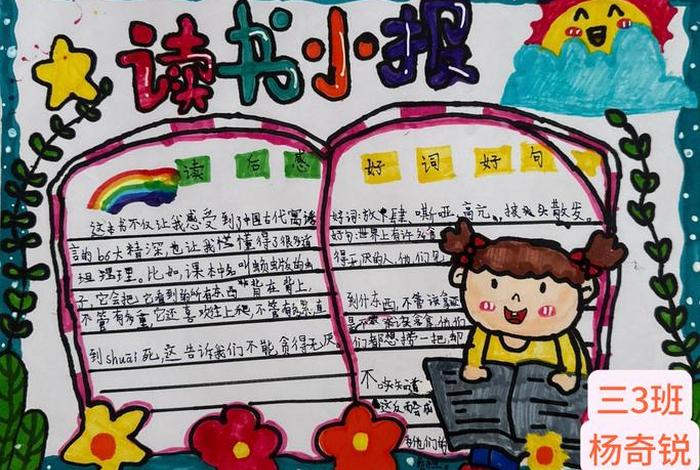 读书小报
读后感
好词好句
这本书不仅让我感受到了中国古代寓
言的bó大精深,也让我懂得了很多道
理。比如,课本中名叫
子,它会把它看到的所有东西背在背上,
不管有多重,它还喜欢往上爬,不管有多累直
到shuāi死,这告诉我们不能贪得无厌
好词:放肆、嘶哑、高亢、披头散发。
好句:世界上有许多贪
得无厌的人,他们见
到什东西,不管
们都想捞一把,却
不知道
三3班
杨奇锐